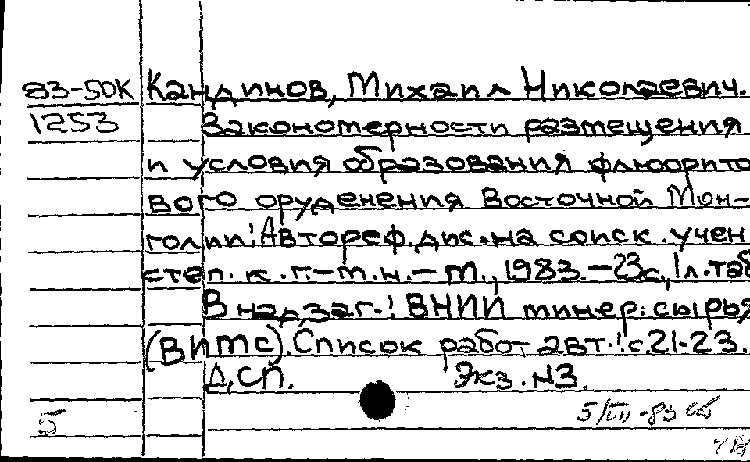 83-5ДК Кандинов, Михаил Николаевич.
1253 Закономерности размещения
и условия образования флюорито
вого оруденения Восточной Мон-
голии: Автореф. дис. на соиск. учен
степ. к. г.-м. н. - М., 1983. - 23 с., 1 л. таб
В надзаг.: ВНИИ минер. сырья
(ВИМС). Список работ авт.: с. 21-23.
ДСП. Экз. №3.
5 5/VII-83